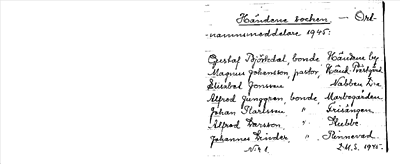 Händene socken. — Ort-
namnmeddelare 1945:
Gustaf Björkdal, bonde Händene by
Magnus Johansson, pastor, Händ. Prästgård
Elisabet Jonsson Nabben
Alfred Ljunggren, bonde, Marbogården
Johan Karlsson, " Frisången
Alfred Larsson, " Stubbe
Johannes Linder, " Rinnevad.
N:r 1. 2.11.S. 1945.